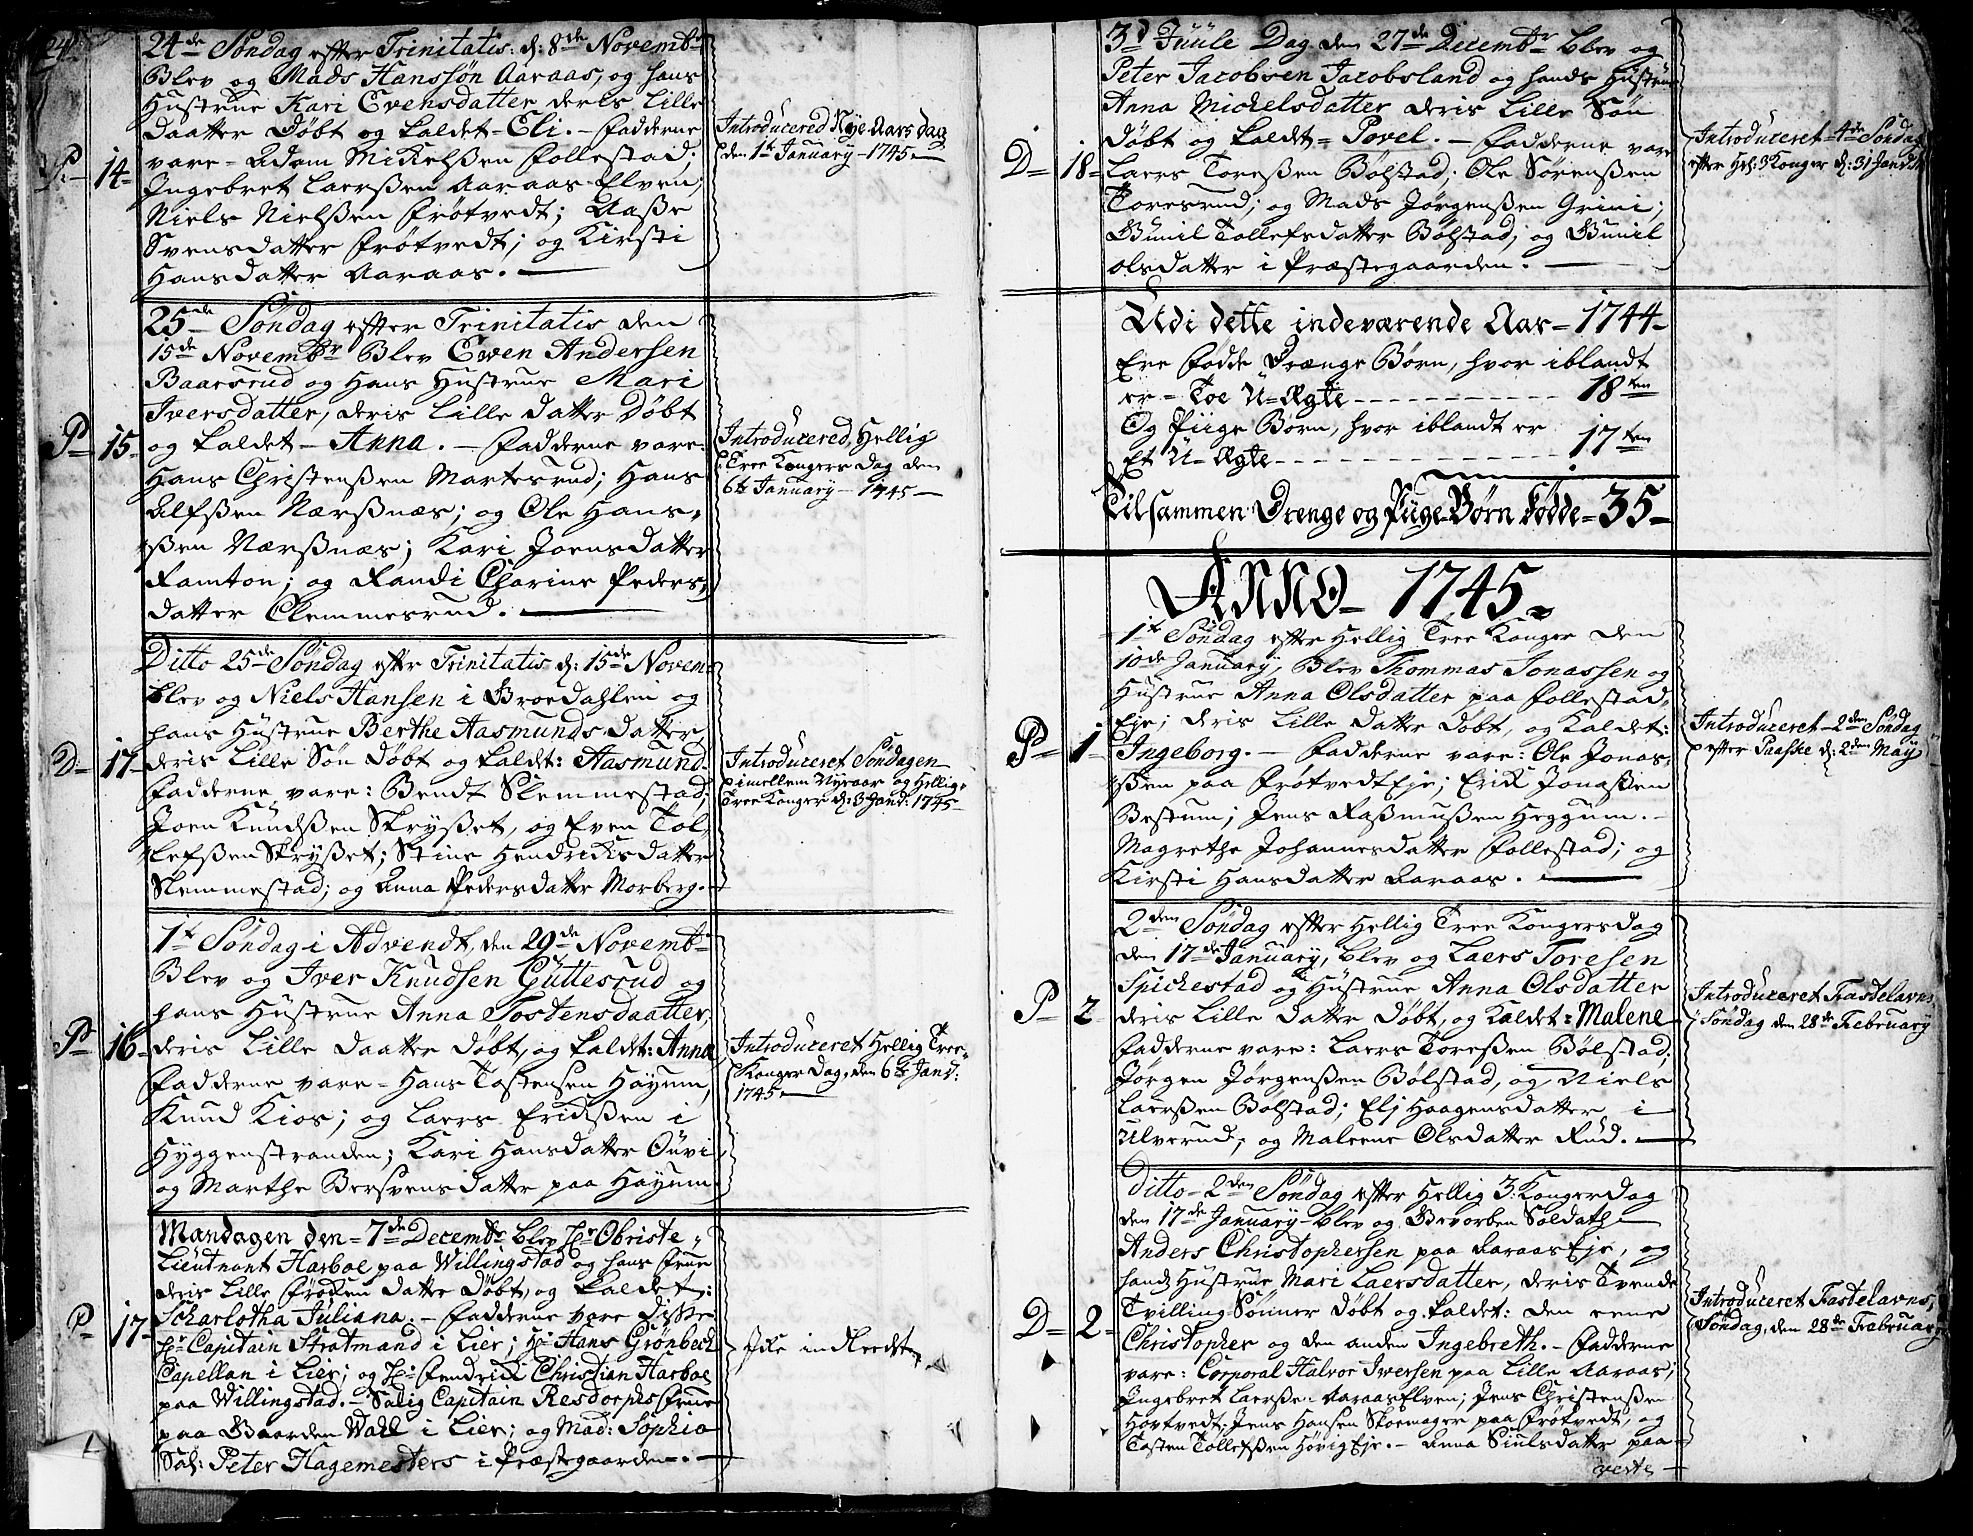 24
24de Søndag efter Trinitatis: d: 8de Novembr
Blev og Mads Hanssøn Aaraas, og hans
Hustrue Kari Evensdatter deris Lille
Daatter Døbt og kaldet - Eli. - Fadderne
vare - Adam Mickelsßen Follestad;
Ingebret Laersßen Aaraas Elven;
Niels Nielsßen Frøtvedt; Aaße
Svensdatter Frøtvedt; og Kirsti
Hansdatter Aaraas.
P. 14
Introducered Nye-Aars dag
den 1te January - 1745
25de Søndag efter Trinitatis den
15de Novembr Blev Ewen Andersen
Baarsrud og Hans Hustrue Mari
Iversdatter, deris Lille Datter Døbt
og kaldet - Anna. - Fadderne vare:
Hans Christensßen Martesrud; Hans
Alfsßen Nærsßnæs; og Ole Hans-
sßen Nærsßnæs; Kari Joensdatter
Ramton; og Randi Chatrine Peders-
datter Clemmesrud.
P 15
Introducered, Hellig
Tree Kongers Dag den
6te January - 1745
Ditto 25de Søndag efter Trinitatis d: 15de Novem
Blev og Niels Hansen i Broedahlen og
hans Hustrue Berthe Aasmunds-datter
deris Lille Søn Døbt og kaldet: Aasmund.
Fadderne vare: Bendt Slemmestad;
Joen Knudsßen Skryßet, og Even Tol-
lefsßen Skryßet; Stine Hendriksdatter
Slemmestad; og Anna Pedersdatter Morberg.
D 17
Introduceret Søndagen
imellem Nyeaar og Hellig-
Tree Konger d: 3 Janv: 1745
1te Søndag i Advendt, den 29de Novembr
Blev og Iver Knudsen Guttesrud og
hans Hustrue Anna Tostensdaatter,
deris Lille Daatter Døbt, og kaldet: Anna
Fadderne vare - Hans Tostensen Høyum,
Knud Kios; og Laers Eriksßen i
Hyggenstranden; Kari Hansdatter Ouvi
og Marthe Bersvensdatter paa Høyum
P 16
Introduceret Hellig Tree
Konger Dag, den 6te Janv:
1745
Mandagen den - 7de Decembr blev Hr Obriste
Lieutnant Harboe paa Willingstad og hans Frue
deris Lille Frøken Datter Døbt, og kaldet:
Scharlotha Juliana. - Fadderne vare disße
Hr Capitain Stratmand i Lier; Hr Hans Grønbech
Capellan i Lier; og Hr Fendrick Christian Harboe
paa Willingstad. - Salig Capitain Resdorphs Frue
paa Gaarden Wall i Lier; og Mad: Sophia
Sal: Peter Hagemesters i Præstegaarden.
P 17
Ikke indleedt
3d Juule Dag den 27de Decembr blev og
Peter Jacobsen Jacobsland og hands Hustrue
Anna Michelsdatter deris Lille Søn
døbt og kaldet = Povel. - Fadderne vare
Laers Toresßen Bølstad; Ole Sørensßen
Toresrud; og Mads Jørgensßen Grini;
Gunil Tollefsdatter Bølstad, og Gunil
Olsdatter i Præstegaarden.
D 18
Introduceret 4de Søndag
efter Hel: 3 Konger d: 31 Janv:
Udi dette indeværende Aar - 1744
Ere Fødde Drænge Børn, hvor iblandt
er - Toe U-Ægte - 18ten
Og Piige Børn, hvor iblandt er
Et U-Ægte - 17ten
Tilsammen Drenge og Piige Børn fødde = 35
ANNO - 1745
1te Søndag efter Hellig Tree Konger den
10de January, Blev Thommas Jonassen og
Hustrue Anna Olsdatter paa Follestad
Eje; deris Lille Datter Døbt, og Kaldet:
Ingeborg. - Fadderne vare: Ole Jonas-
sßen paa Frøtvedt Eje; Erik Jonasßen
Bestum; Jens Rasßmusßen Heggum. -
Magrethe Johannesdatter Follestad; og
Kirsti Hansdatter Aaraas.
P 1
Introduceret - 2den Søndag
efter Paaske d: 2den May
2den Søndag efter Hellig Tree Kongersdag
den 17de January, blev og Laers Toresen
Spickestad og Hustrue Anna Olsdatter
deris Lille Datter Døbt, og Kaldet: Malene
Fadderne vare: Laers Toresßen Bølstad;
Jørgen Jørgensßen Bølstad, og Niels
Laersßen Bølstad; Elj Haagensdatter i
Ulverud; og Maleene Olsdatter Rud.
P 2
Introduceret Fastelavns
Søndag den 28de February
Ditto - 2den Søndag efter Hellig 3: Konger Dag
den 17de January - blev og Gevorben Soldath
Anders Christophersen paa Aaraas Eje, og
hands Hustrue Mari Laersdatter, deris Tvende
Tvilling Sønner døbt og kaldet: den eene
Christopher og den anden Ingebreth. - Fadderne
vare: Corporal Halvor Iversen paa Lille Aaraas;
Ingebret Laersße: Aaraas Elven; Jens Christensßen
Høvtvedt; Jens Hansen Skoemager paa Frøtvedt, og
Tosten Tollefsßen Høvig Eje. - Anna Siulsdatter paa
verte
D 2
Introduceret Fastelavns
Søndag, den 28de February